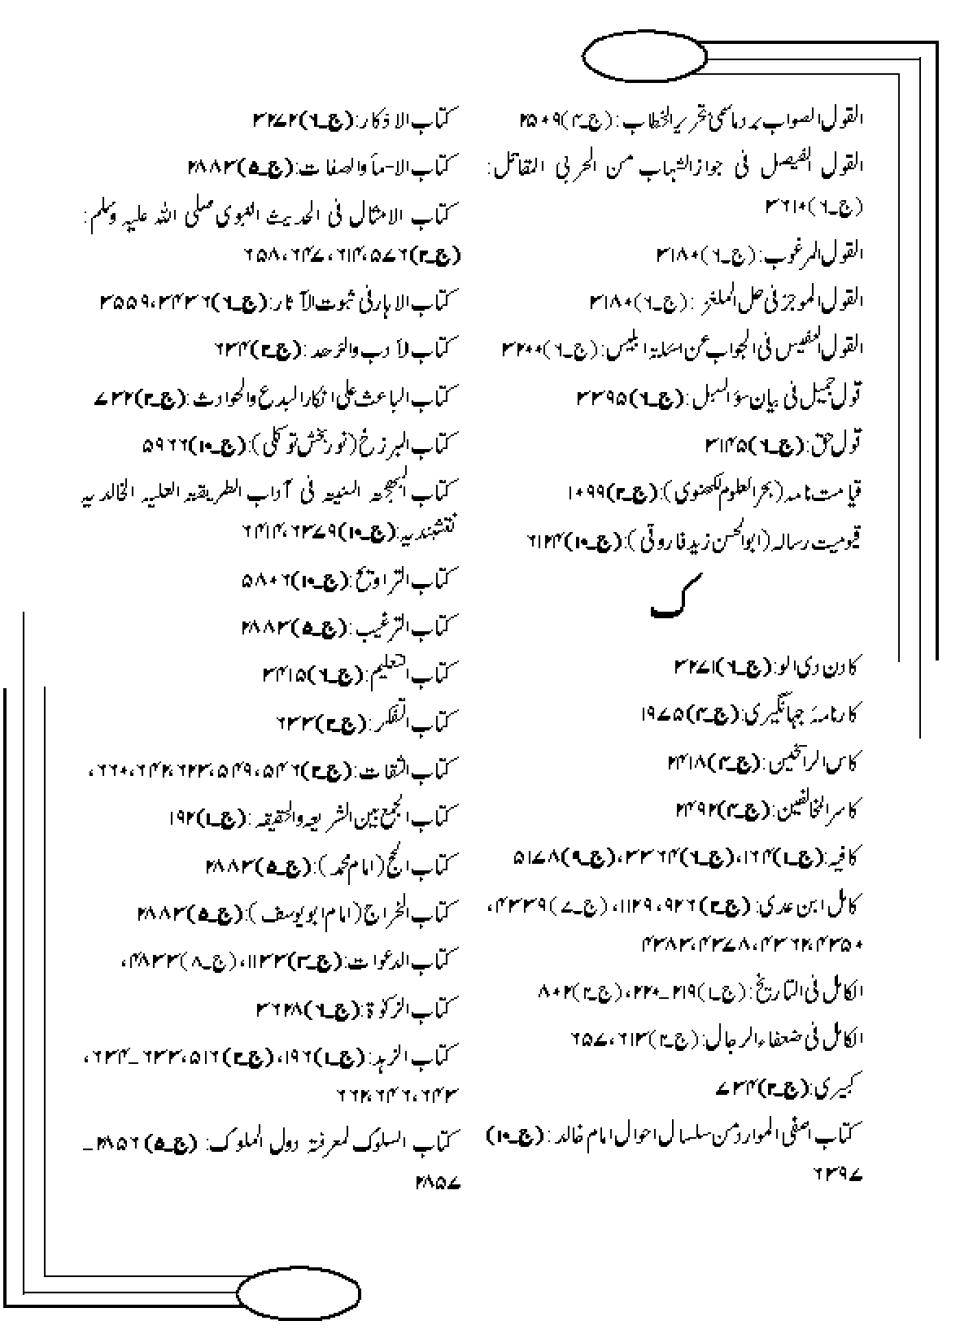 القول الصواب بر دماسمی تحریر الخطاب: (ج۔۴)۲۵۰۹
القول الفیصل فی جوازالشہاب من الحربی المقاتل:
(ج۔۶)۳۶۱۰
القول المرغوب: (ج۔۶)۳۱۸۰
القول الموجز فی حل الملغز: (ج۔۶)۳۱۸۰
القول النفیس فی الجواب عن اسئلۃ ابلیس: (ج۔۶)۳۲۰۰
قول جمیل فی بیان سؤ السبل: (ج۔۶)۳۳۹۵
قول حق: (ج۔۶)۳۱۴۵
قیامت نامہ (بحرالعلوم لکھنوی): (ج۔۲)۱۰۹۹
قیومیت رسالہ (ابوالحسن زید فاروقی): (ج۔۱۰)۶۱۲۴
ک
کادن دی الو: (ج۔۶)۳۲۷۱
کارنامۂ جہانگیری: (ج۔۴)۱۹۷۵
کاس الرائحین: (ج۔۴)۲۴۱۸
کاسر المخالفین: (ج۔۴)۲۴۹۲
کافیہ: (ج۔۱)۱۶۴، (ج۔۶)۳۳۶۴، (ج۔۹)۵۱۷۸
کامل ابن عدی: (ج۔۲)۹۲۶، ۱۱۲۹، (ج۔۷)۴۳۳۹،
۴۳۵۰، ۴۳۶۲، ۴۳۷۸، ۴۳۸۳
الکامل فی التاریخ: (ج۔۱)۲۱۹۔۲۲۰، (ج۔۲)۸۰۲
الکامل فی ضعفاء الرجال: (ج۔۲)۶۱۳، ۶۵۷
کبیری: (ج۔۲)۷۳۴
کتاب اصفی الموارد من سلسال احوال امام خالد: (ج۔۱۰)
۶۳۹۷
کتاب الاذکار: (ج۔۶)۳۲۷۲
کتاب الاسمأ والصفات: (ج۔۵)۲۸۸۳
کتاب الامثال فی الحدیث النبوی صلی اللہ علیہ وسلم:
(ج۔۲)۵۷۶، ۶۱۴، ۶۴۷، ۶۵۸
کتاب الابارفی ثبوت الآثار: (ج۔۶)۳۴۳۶، ۳۵۵۹
کتاب لأدب والزحد: (ج۔۲)۶۳۴
کتاب الباعث علی انکارالبدع والحوادث: (ج۔۲)۷۳۲
کتاب البرزخ (نور بخش توکلی): (ج۔۱۰)۵۹۶۶
کتاب البہجۃ السنیۃ فی آداب الطریقۃ العلیہ الخالدیہ
نقشبندیہ: (ج۔۱۰)۶۳۷۹، ۶۴۱۴
کتاب التراویح: (ج۔۱۰)۵۸۰۶
کتاب الترغیب: (ج۔۵)۲۸۸۳
کتاب التعلیم: (ج۔۶)۳۴۱۵
کتاب التفکر: (ج۔۲)۶۳۳
کتاب الثقات: (ج۔۲)۵۴۶، ۵۴۹، ۶۲۳، ۶۴۲، ۶۶۰،
کتاب الجمع بین الشریعہ والحقیقہ: (ج۔۱)۱۹۲
کتاب الحج (امام محمد): (ج۔۵)۲۸۸۳
کتاب الخراج (امام ابو یوسف): (ج۔۵)۲۸۸۳
کتاب الدعوات: (ج۔۲)۱۱۳۳، (ج۔۸)۴۸۳۳،
کتاب الزکوۃ: (ج۔۶)۳۶۲۸
کتاب الزہد: (ج۔۱)۱۹۶، (ج۔۲)۵۱۶، ۶۳۳۔۶۳۴،
۶۴۳، ۶۴۶، ۶۶۲
کتاب السلوک لمعرفۃ دول الملوک: (ج۔۵)۲۸۵۶۔
۲۸۵۷